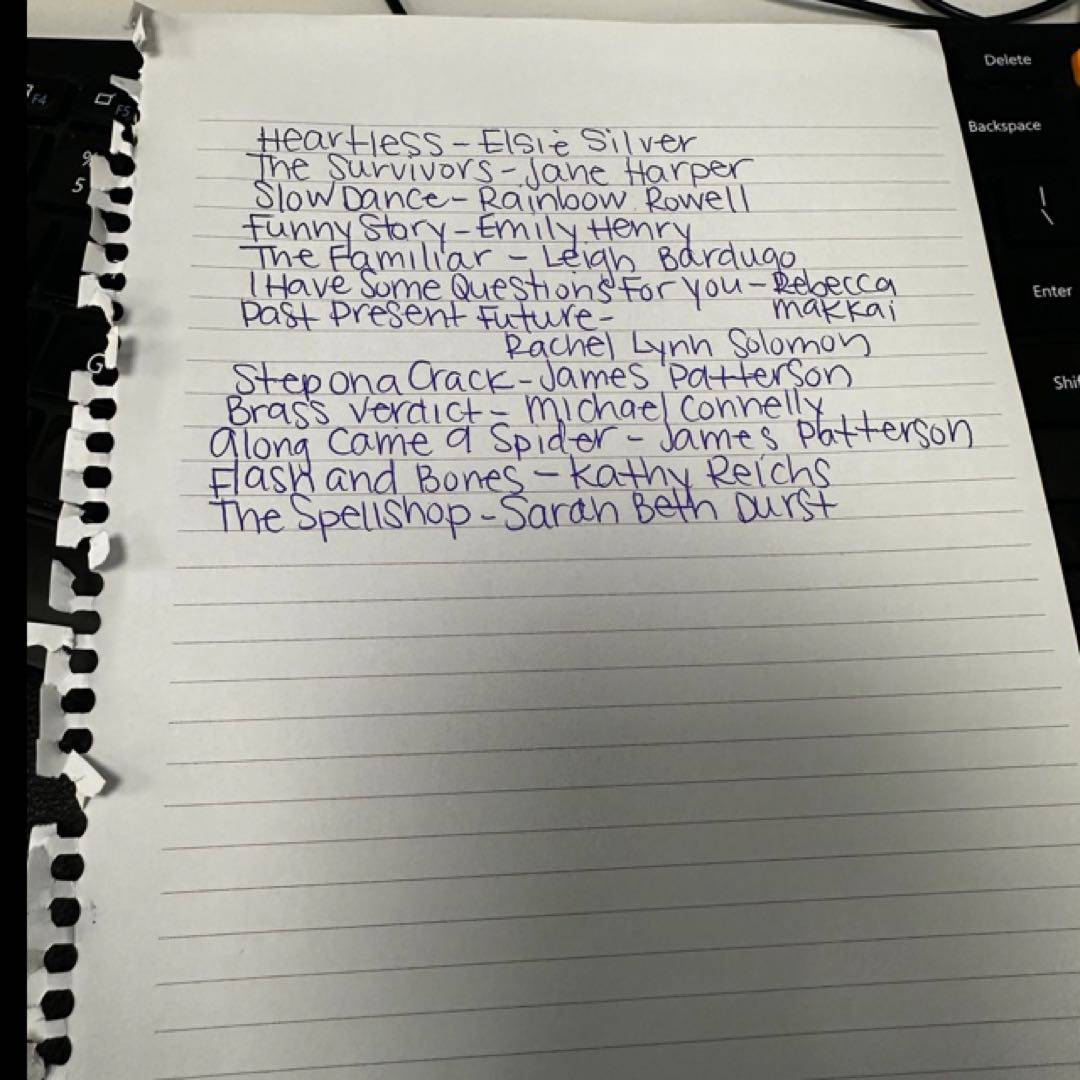 Heartless - Elsie Silver
The Survivors - Jane Harper
Slow Dance - Rainbow Rowell
Funny Story - Emily Henry
The Familiar - Leigh Bardugo
I Have Some Questions For you - Rebecca
Makkai
Past Present Future -
Rachel Lynn Solomon
Step on a Crack - James Patterson
Brass Verdict - Michael Connelly
Along Came a Spider - James Patterson
Flash and Bones - Kathy Reichs
The Spellshop - Sarah Beth Durst
Delete
Backspace
\
Enter
Shi
F4
F5
%
5
G